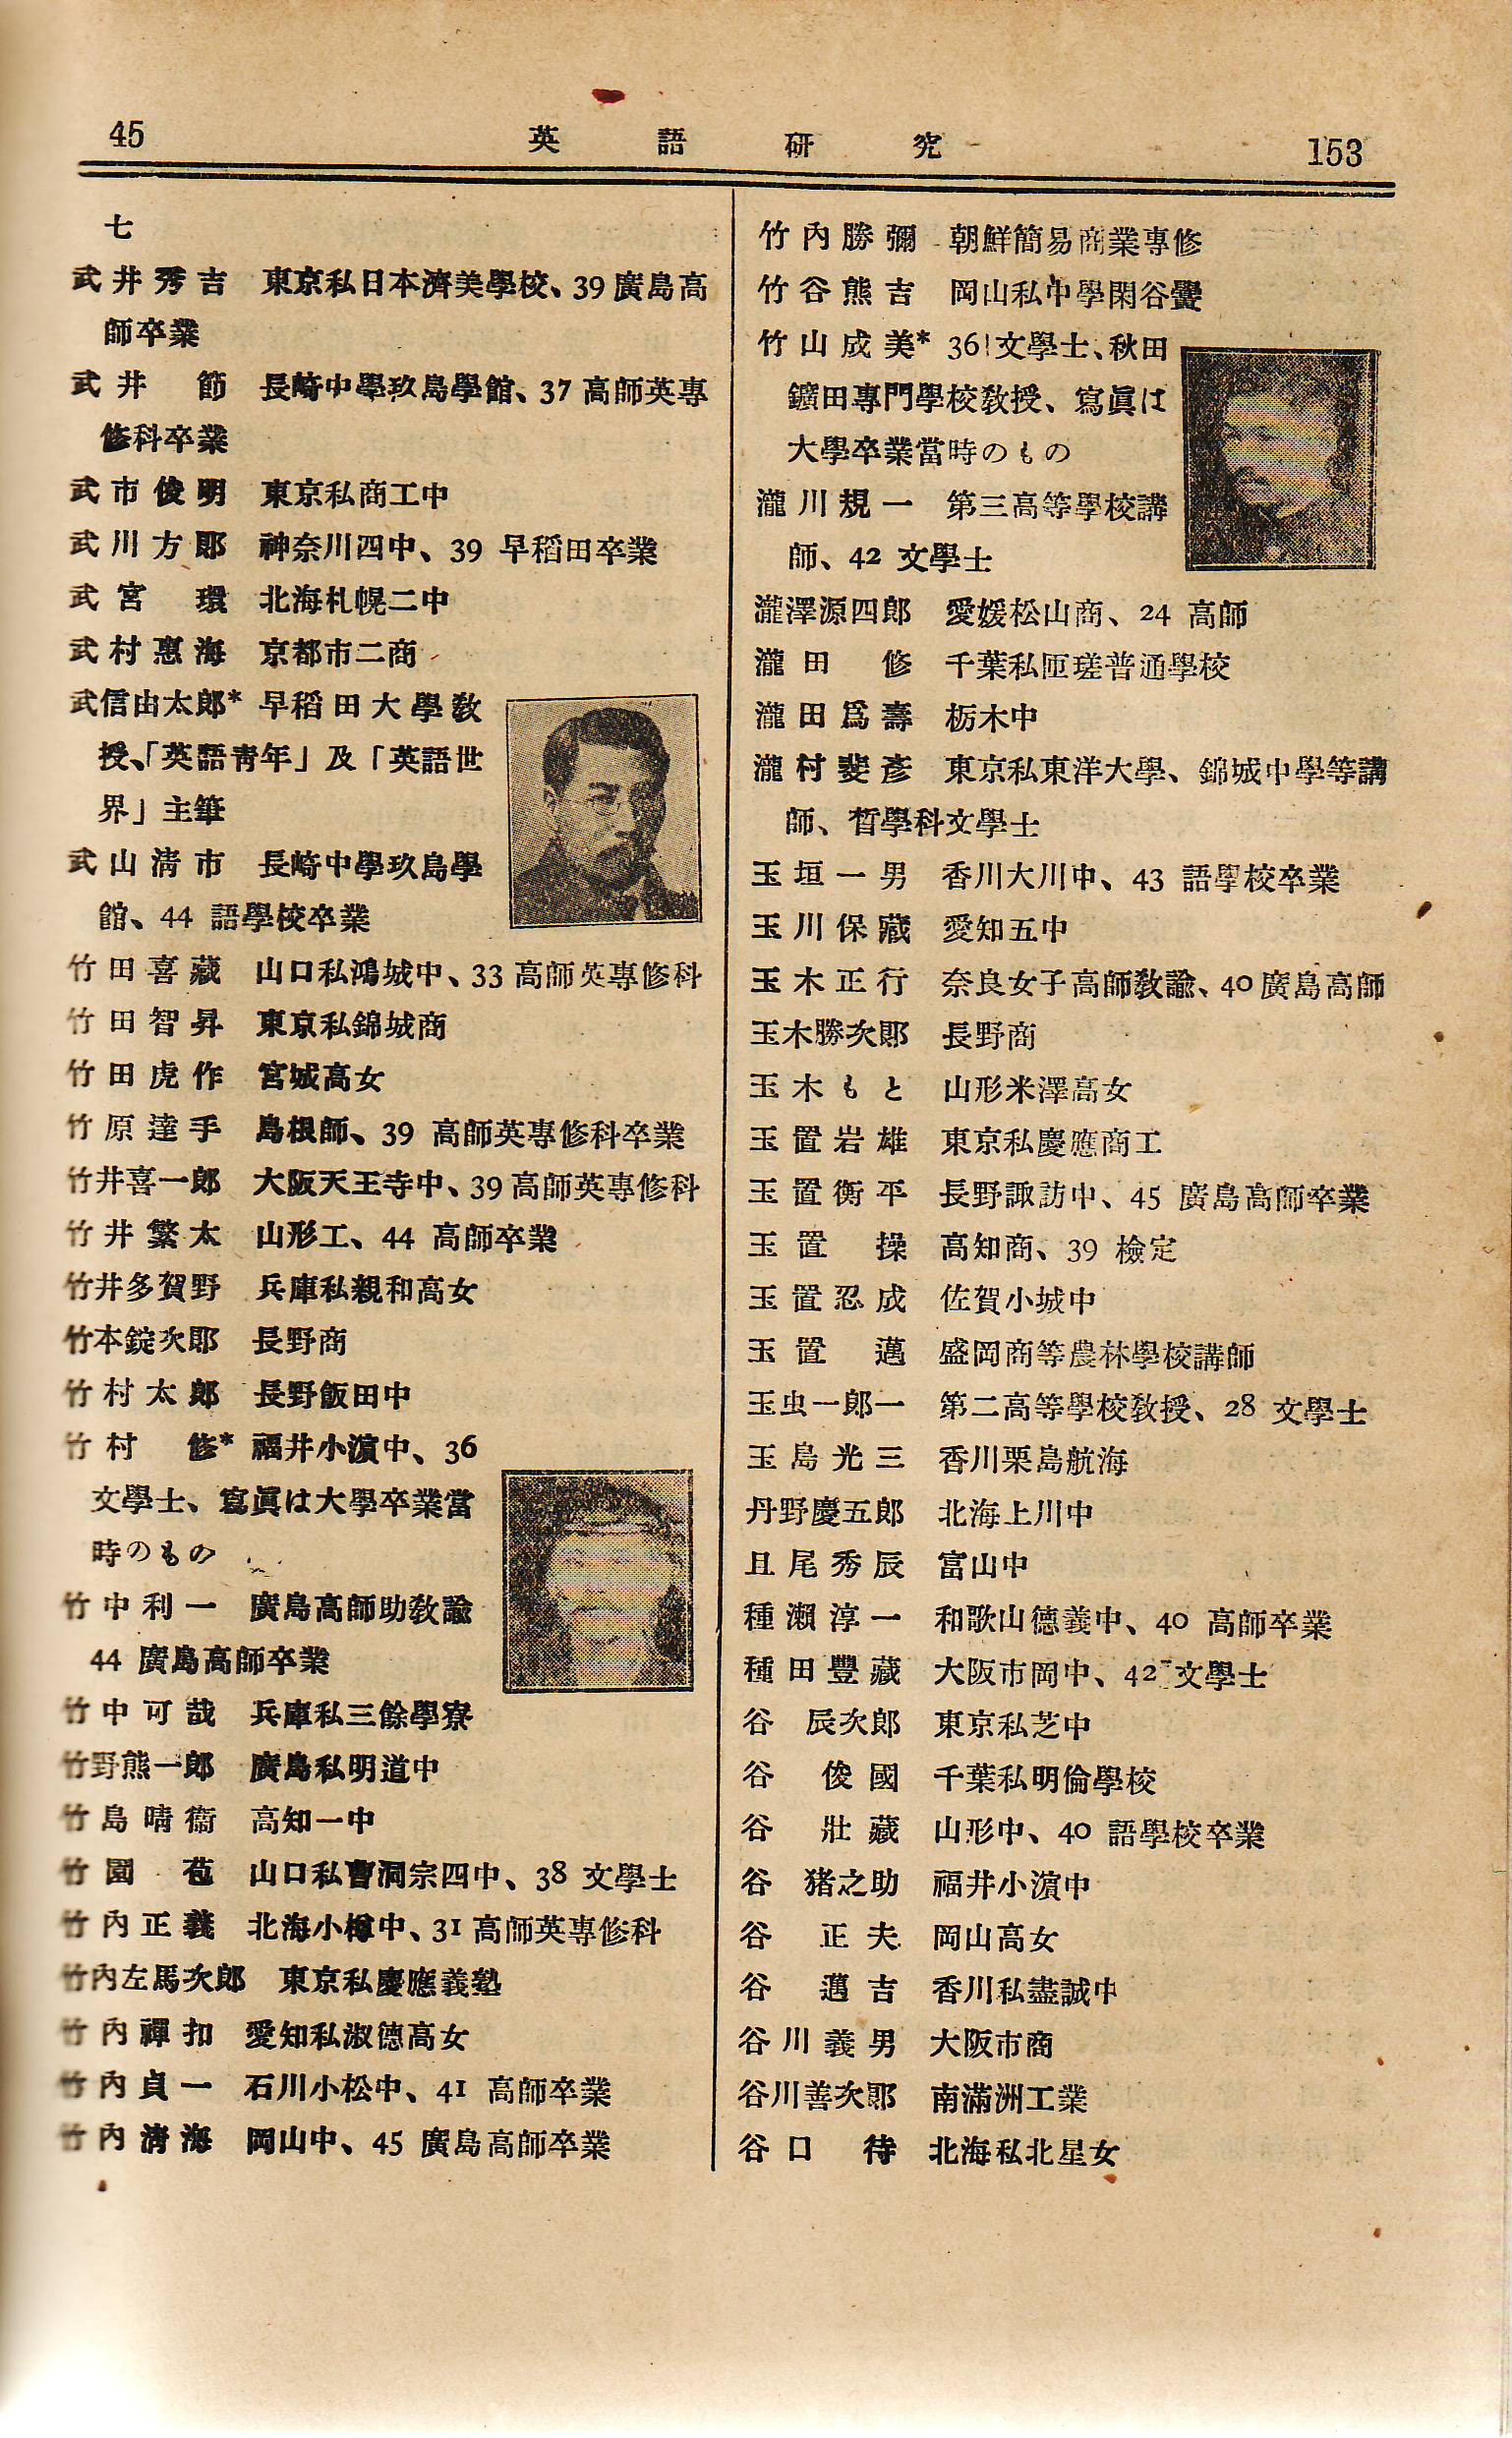 45 英語研究 153
七
武井秀吉 東京私日本濟美學校、39 廣島高
師卒業
武井節 長崎中學玖島學館、37 高師英專
修科卒業
武市俊明 東京私商工中
武川方郞 神奈川四中、39 早稻田卒業
武宮環 北海札幌二中
武村惠海 京都市二商
武信由太郎* 早稻田大學敎
授、「英語靑年」及「英語世
界」主筆
武山淸市 長崎中學玖島學
館、44 語學校卒業
竹田喜藏 山口私鴻城中、33 高師英專修科
竹田智昇 東京私錦城商
竹田虎作 宮城高女
竹原達手 島根師、39 高師英專修科卒業
竹井喜一郎 大阪天王寺中、39 高師英專修科
竹井繁太 山形工、44 高師卒業
竹井多賀野 兵庫私親和高女
竹本錠次郞 長野商
竹村太郎 長野飯田中
竹村修* 福井小濵中、36
文學士、寫眞は大學卒業當
時のもの
竹中利一 廣島高師助敎諭
44 廣島高師卒業
竹中可哉 兵庫私三餘學寮
竹野熊一郎 廣島私明道中
竹島晴衞 高知一中
竹園苞 山口私曹洞宗四中、38 文學士
竹內正義 北海小樽中、31 高師英專修科
竹內左馬次郎 東京私慶應義塾
竹內禪扣 愛知私淑德高女
竹內貞一 石川小松中、41 高師卒業
竹內淸海 岡山中、45 廣島高師卒業
竹內勝彌 朝鮮簡易商業專修
竹谷熊吉 岡山私中學閑谷黌
竹山成美* 36 文學士、秋田
鑛田專門學校敎授、寫眞は
大學卒業當時のもの
瀧川規一 第三高等學校講
師、42 文學士
瀧澤源四郎 愛媛松山商、24 高師
瀧田修 千葉私匝瑳普通學校
瀧田爲壽 栃木中
瀧村斐彥 東京私東洋大學、錦城中學等講
師、哲學科文學士
玉垣一男 香川大川中、43 語學校卒業
玉川保藏 愛知五中
玉木正行 奈良女子高師敎諭、40 廣島高師
玉木勝次郞 長野商
玉木もと 山形米澤高女
玉置岩雄 東京私慶應商工
玉置衡平 長野諏訪中、45 廣島高師卒業
玉置操 高知商、39 檢定
玉置忍成 佐賀小城中
玉置邁 盛岡商等農林學校講師
玉虫一郎一 第二高等學校敎授、28 文學士
玉島光三 香川栗島航海
丹野慶五郎 北海上川中
且尾秀辰 富山中
種瀨淳一 和歌山德義中、40 高師卒業
種田豐藏 大阪市岡中、42 文學士
谷辰次郎 東京私芝中
谷俊國 千葉私明倫學校
谷壯藏 山形中、40 語學校卒業
谷猪之助 福井小濵中
谷正夫 岡山高女
谷邁吉 香川私盡誠中
谷川義男 大阪市商
谷川善次郞 南滿洲工業
谷口待 北海私北星女